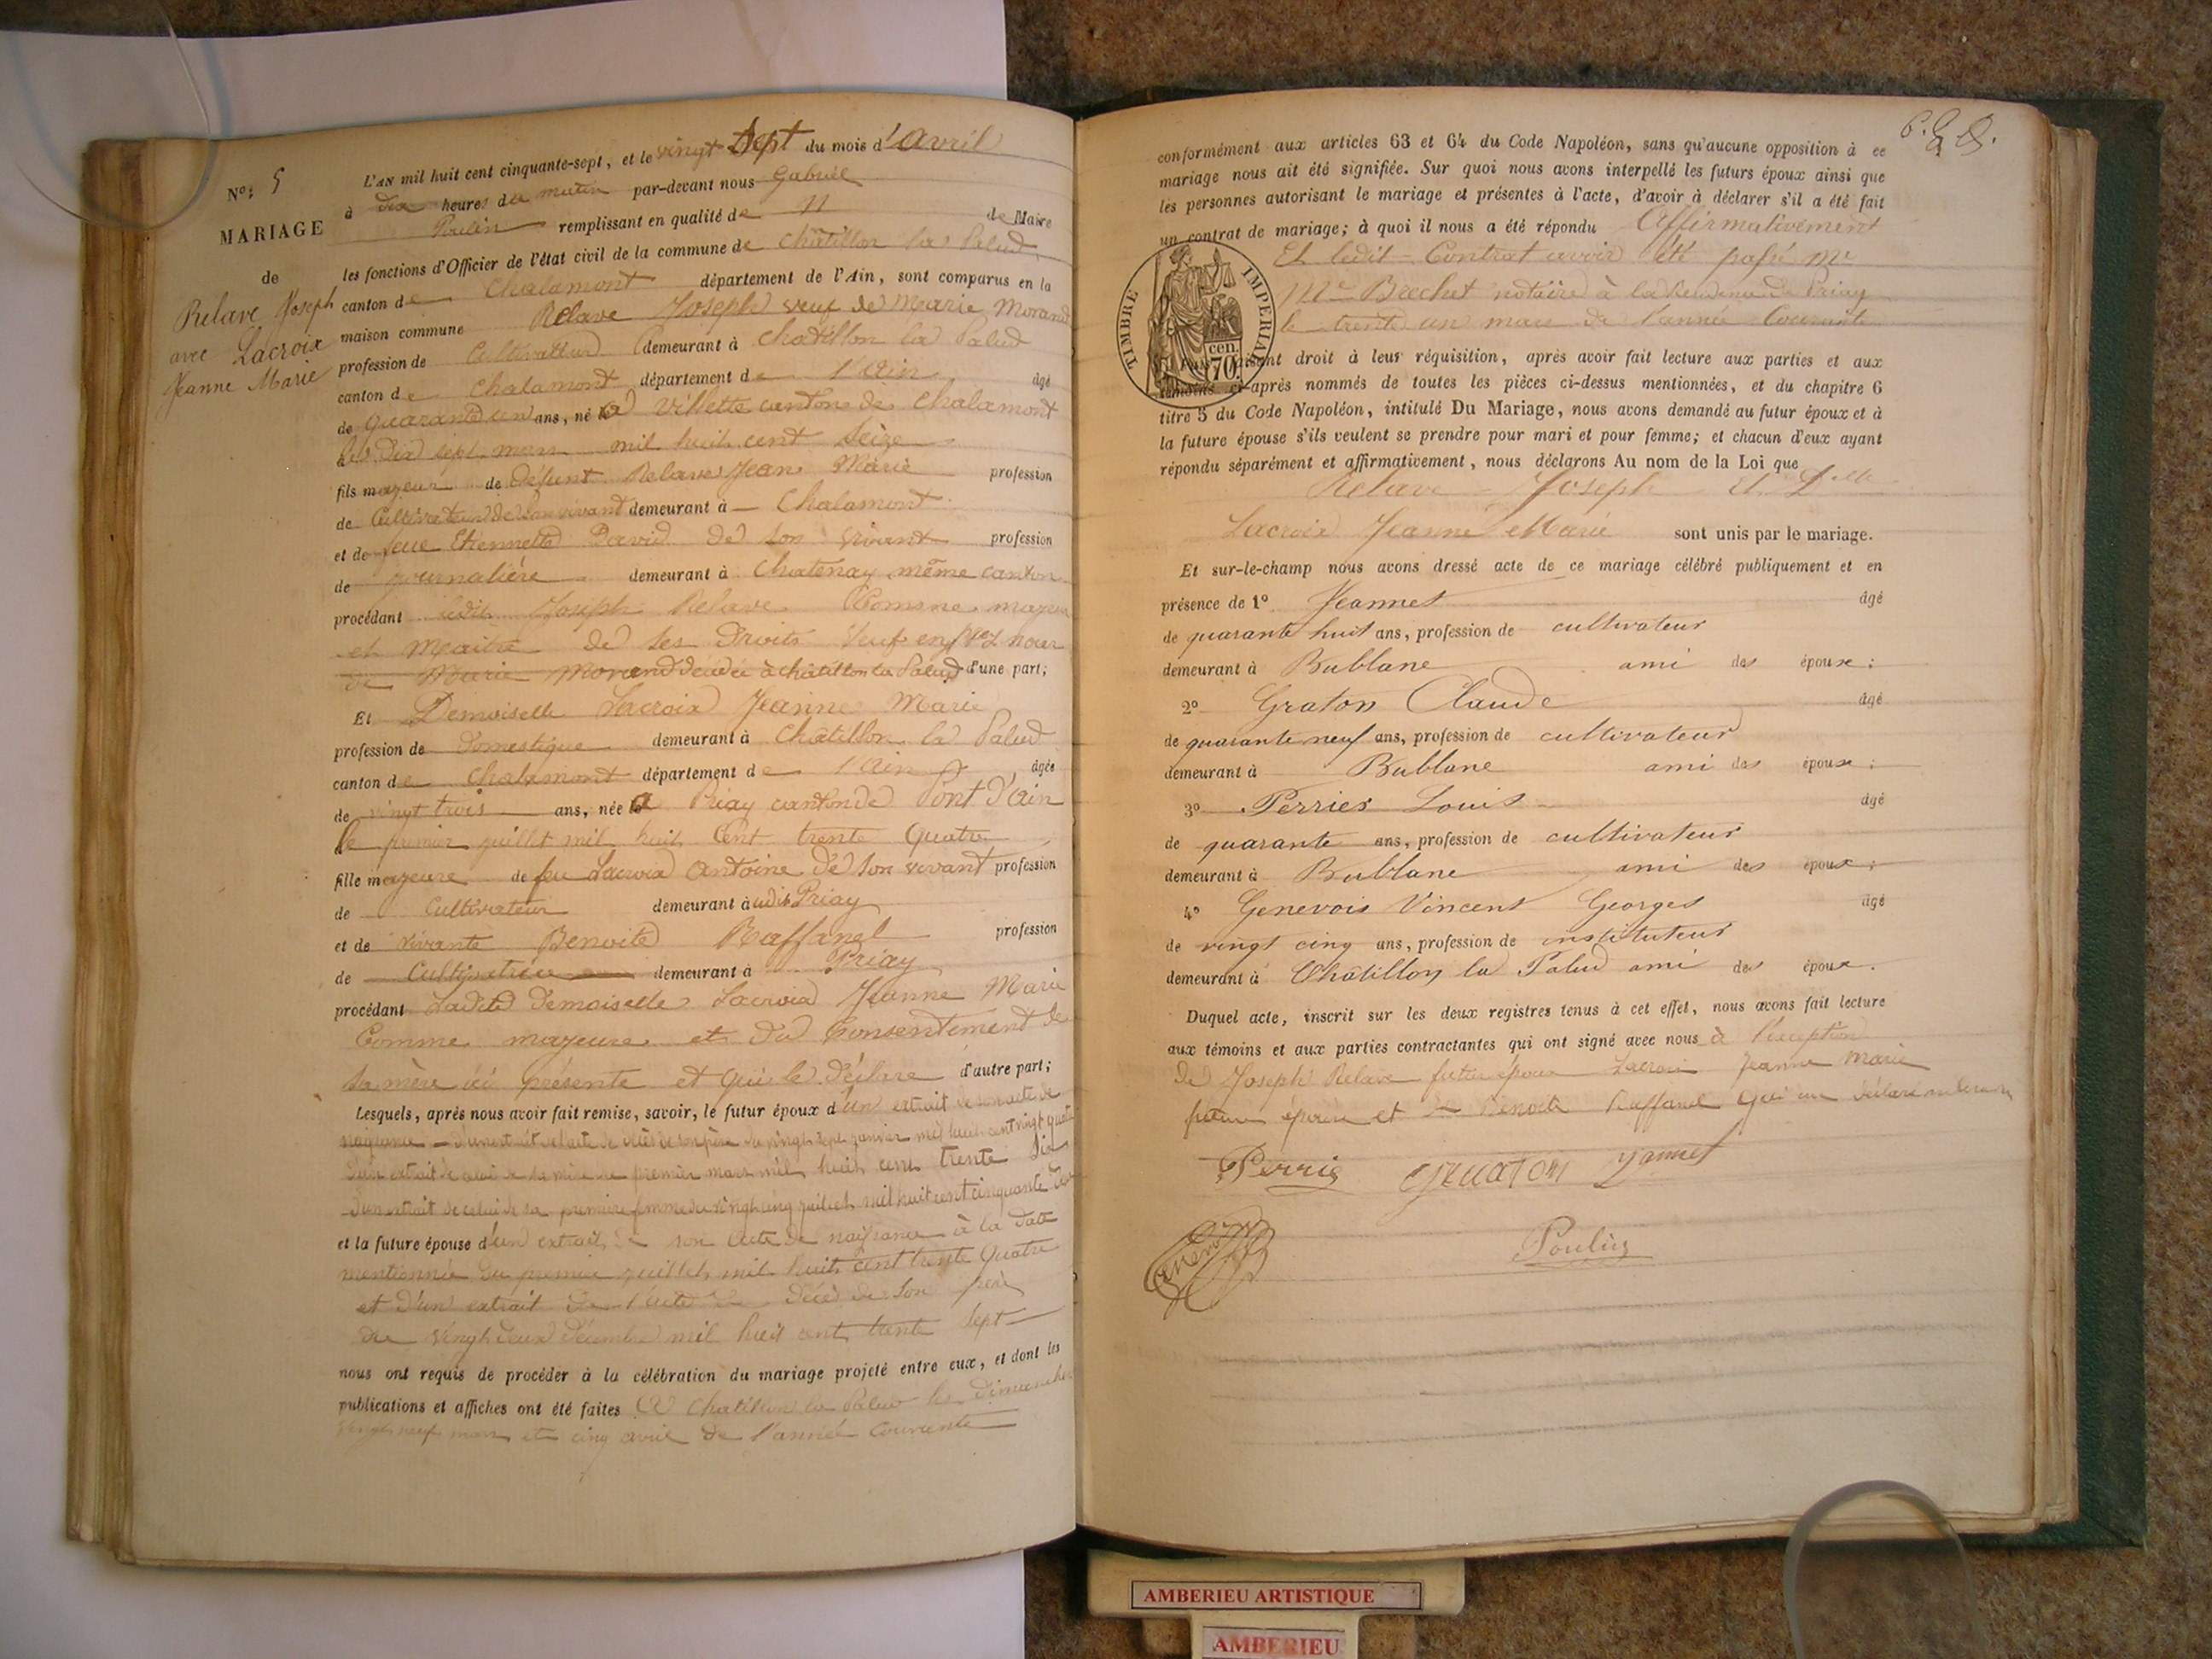 N.º 5
MARIAGE
de
Relave Joseph
avec Lacroix
Jeanne Marie
L'AN mil huit cent cinquante-sept, et le vingt Sept du mois d'avril
à dix heures du matin par-devant nous Gabriel
Poulin remplissant en qualité de de Maire
les fonctions d'Officier de l'état civil de la commune de Châtillon la Palud
canton de Chalamont département de l'Ain, sont comparus en la
maison commune Relave Joseph veuf de Marie Morand
profession de Cultivateur demeurant à Chatillon la Palud
canton de Chalamont département de l'Ain âgé
de quarante un ans, né à Villette canton de Chalamont
le dix sept mars mil huit cent seize
fils majeur de défunt Relave Jean Marie profession
de Cultivateur de son vivant demeurant à Chalamont
et de feue Etiennette David de son vivant profession
de journalière demeurant à Chatenay même canton
procédant ledit Joseph Relave Comme majeur
et Maitre de ses droits Veuf en
de Marie Morand décédée à châtillon la Palud d'une part;
Et Demoiselle Lacroix Jeanne Marie
profession de domestique demeurant à Châtillon la Palud
canton de Chalamont département de l'Ain âgée
de vingt trois ans, née à Priay canton de Pont d'Ain
le premier juillet mil huit Cent trente Quatre
fille majeure de feu Lacroix Antoine de son vivant profession
de Cultivateur demeurant à udit Priay
et de vivante Benoite Raffanel profession
de Cultivatrice demeurant à Priay
procédant Ladite demoiselle Lacroix Jeanne Marie
Comme majeure et du Consentement de
sa mère ici présente et qui le déclare d'autre part;
Lesquels, après nous avoir fait remise, savoir, le futur époux d'un extrait de son acte de
naissance d'un extrait de l'acte de décès de son père du vingt sept janvier mil huit cent vingt quatre
d'un extrait de celui de sa mère du premier mars mil huit cent trente six
d'un extrait de celui de sa première femme du vingt cinq juillet mil huit cent cinquante six
et la future épouse d'un extrait de son Acte de naissance à la date
mentionnée du premier juillet mil huit cent trente Quatre
et d'un extrait de l'acte de décès de son père
du vingt deux décembre mil huit cent trente sept
nous ont requis de procéder à la célébration du mariage projeté entre eux, et dont les
publications et affiches ont été faites à Chatillon la Palud les dimanches
vingt neuf mars et cinq avril de l'année courante
conformément aux articles 63 et 64 du Code Napoléon, sans qu'aucune opposition à ce
mariage nous ait été signifiée. Sur quoi nous avons interpellé les futurs époux ainsi que
les personnes autorisant le mariage et présentes à l'acte, d'avoir à déclarer s'il a été fait
un contrat de mariage; à quoi il nous a été répondu Affirmativement
Et ledit Contrat avoir été passé Me
Me Brechet notaire à la Résidence de Priay
le trente un mars de l'année Courante
TIMBRE IMPERIAL
70 cen.
faisant droit à leur réquisition, après avoir fait lecture aux parties et aux
témoins ci-après nommés de toutes les pièces ci-dessus mentionnées, et du chapitre 6
titre 5 du Code Napoléon, intitulé Du Mariage, nous avons demandé au futur époux et à
la future épouse s'ils veulent se prendre pour mari et pour femme; et chacun d'eux ayant
répondu séparément et affirmativement, nous déclarons Au nom de la Loi que
Relave Joseph et Dlle
Lacroix Jeanne Marie sont unis par le mariage.
Et sur-le-champ nous avons dressé acte de ce mariage célébré publiquement et en
présence de 1º Jeannet âgé
de quarante huit ans, profession de cultivateur
demeurant à Bublane ami des époux;
2º Graton Claude âgé
de quarante neuf ans, profession de cultivateur
demeurant à Bublane ami des époux;
3º Perrier Louis âgé
de quarante ans, profession de cultivateur
demeurant à Bublane ami des époux;
4º Genevois Vincent Georges âgé
de vingt cinq ans, profession de instituteur
demeurant à Châtillon la Palud ami des époux.
Duquel acte, inscrit sur les deux registres tenus à cet effet, nous avons fait lecture
aux témoins et aux parties contractantes qui ont signé avec nous à l'exception
de Joseph Relave futur époux Lacroix Jeanne Marie
future épouse et Benoite Raffanel qui
Perrie Graton Jannet
Poulin
AMBERIEU ARTISTIQUE
AMBERIEU